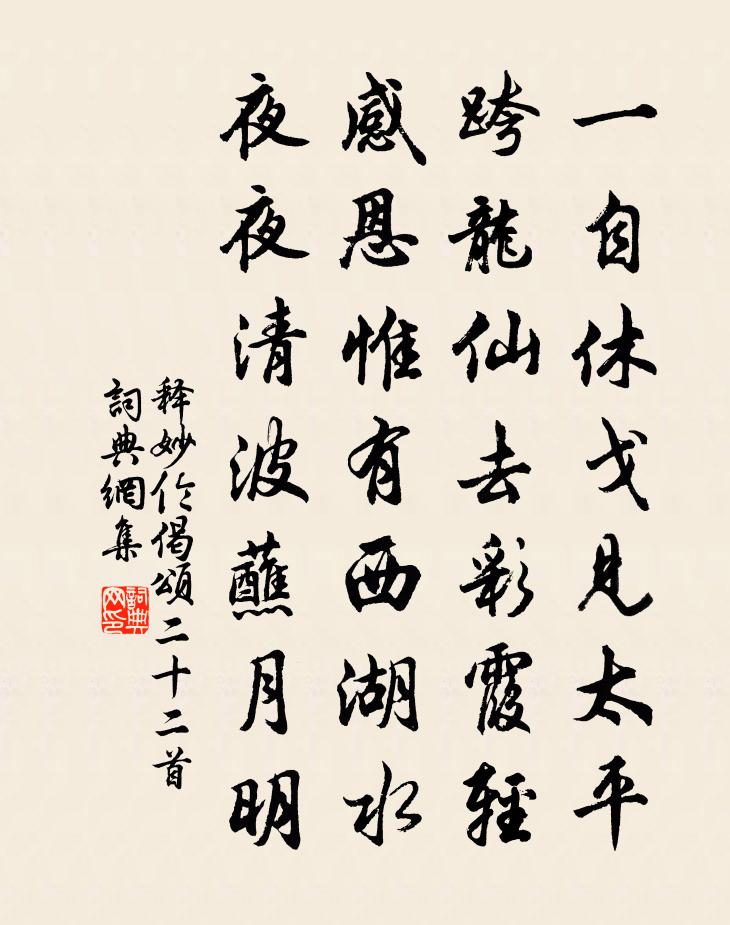 一自休戈見太平
跨龍仙去彩霞輕
感恩惟有西湖水
夜夜清波蘸月明
释妙伦偈頌二十二首
詞典網集
詞典网印